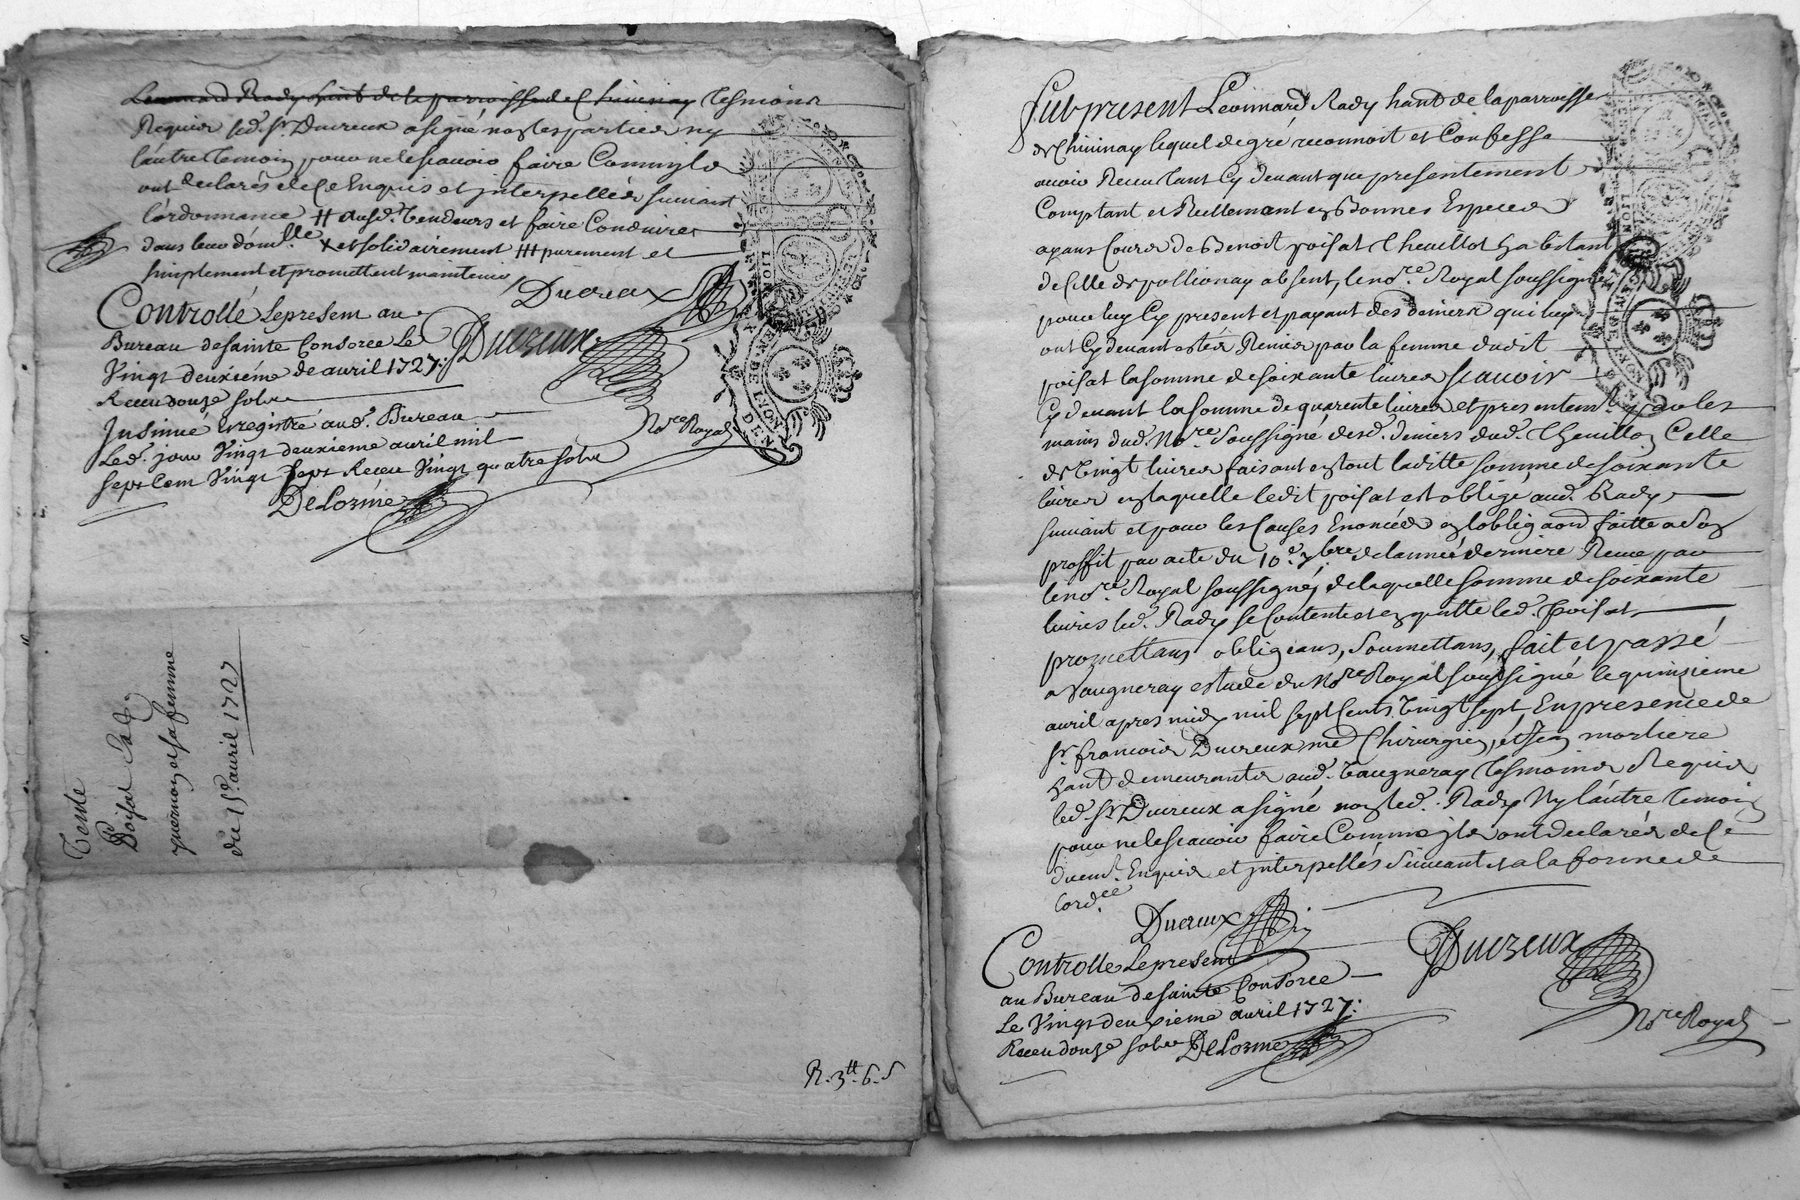 Leonnard Rady habit. de la parroisse de Chivinay tesmoins
Requis led. Sr. Ducreux a signé non les parties ny
lautre temoin pour ne le scavoir faire Comm'ils
ont declarés de ce Enquis et jnterpellés suivant
l'ordonnance # ausd. Vendeurs et faire Conduires
dans leur dom.lle x et solidairement ## purement et
simplement et promettent maintenir
Ducreux
Controllé le present au
Bureau de sainte Consorce Le
Vingt deuxiéme de avril 1727:
Receu douze sols
Ducreux
Nore. Royal
Jnsinué Enregistré aud. Bureau
Led. jour Vingt deuxieme avril mil
sept Cent Vingt sept Receu Vingt quatre sols
DeLorme
GEN. DE LYON
Vente
Poisat
quernon et sa femme
du 15e. avril 1727
R. 3tt. 6. s
Fut present Leonnard Rady habt. de la parroisse
de Chivinay lequel de gré reconnoit et Confesse
avoir Receu tant Cy devant que presentement
Comptant et Reellement en Bonnes Especes
ayans Cours de Benoit poisat Cheuillot habitant
de Celle de pollionay absent, le nore. Royal soussigné
pour luy Cy present et payant des deniers qui luy
ont Cy devant estés Remis par la femme dudit
poisat la somme de soixante livres scavoir
Cy devant la somme de quarente livres et presentemt. par les
mains dud. Nore. soussigné desd. deniers dud. Cheuillon Celle
de Vingt livres faisant en tout laditte somme de soixante
livres en laquelle ledit poisat est obligé, aud. Rady
suivant et pour les Causes Enoncées en lobligaon. faitte a son
proffit par acte du 10e. 7bre de lannée derniere Receue par
le nore. Royal soussigné, de laquelle somme de soixante
livres led. Rady se Contente et en quitte led. Poisat
promettans obligeans, Soumettans, fait et passé
a Vaugneray estude du Nore. Royal soussigné le quinzieme
avril apres midy mil sept Cents Vingt sept En presence de
Sr. francois Ducreux me Chirurgien, et Jean morliere
habt. demeurants aud. Vaugneray Tesmoins Requis
led. Sr Ducreux a signé non led. Rady Ny lautre temoin
pour ne le scavoir faire Comme jls ont declarés de Ce
duemt. Enquis et jnterpellés Suivant et a la forme de
Lordce.
Ducreux
Controllé Le present
au Bureau de sainte Consorce
Le Vingt deuxieme avril 1727:
Receu douze sols DeLorme
Ducreux
Nore Royal